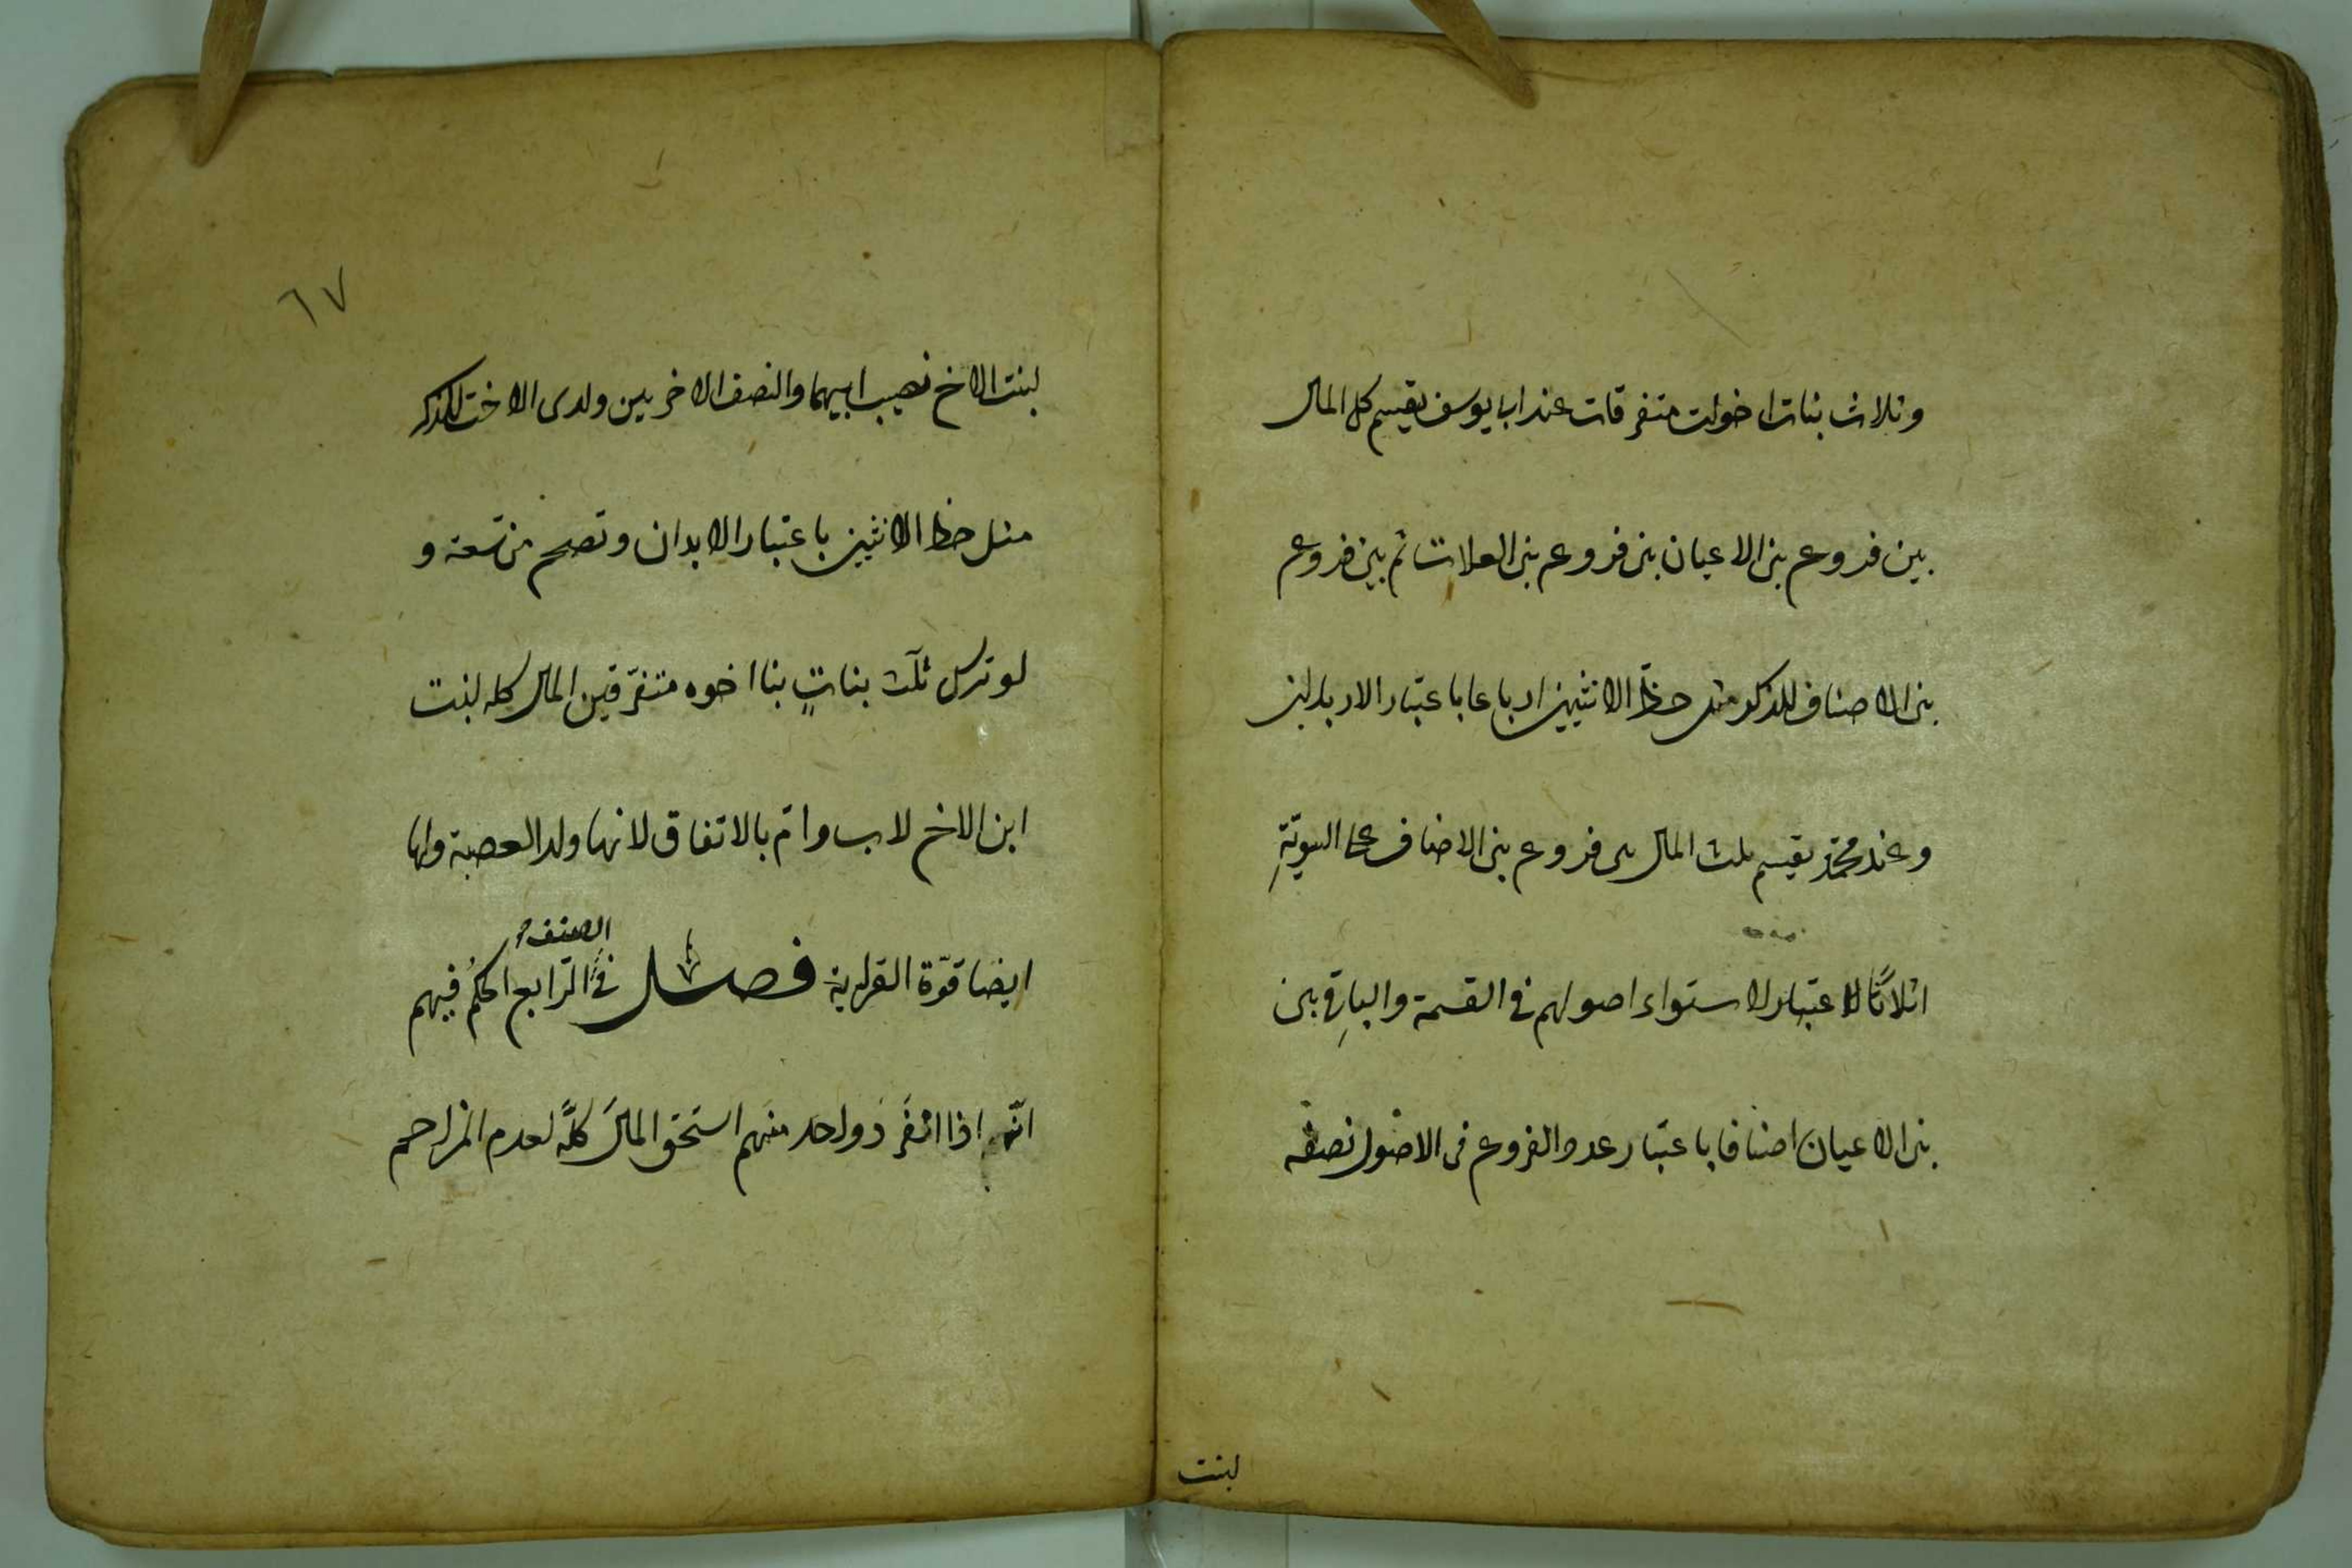 وثلاث بنات اخوات متفرقات عند ابا يوسف يقسم كل المال
بين فروع بنى الاعيان بنى فروع بنى العلات ثم بين فروع
بنى الاصناف للذكر مثل حظ الانثيين ارباعا باعتبار الابدان
وعند محمد يقسم ثلث المال بين فروع بنى الاخياف على السوية
اثلاثا لاعتبار لاستواء اصولهم فى القسمة والباقى بين
بنى الاعيان اصنافا باعتبار عدد الفروع فى الاصول نصفه
لبنت
٦٧
لبنت الاخ نصيب ابيهما والنصف الاخر بين ولدى الاخت للذكر
مثل حظ الانثيين باعتبار الابدان وتصح من تسعة و
لو ترك ثلث بناتٍ بنا اخوه متفرّقين المال كله لبنت
ابن الاخ لاب وامّ بالاتفاق لانها ولد العصبة ولها
ايضا قوّة القرابة فصل فى الصنف الرّابع الحكمُ فيهم
انّه اذا انفَردَ واحد منهم استحَق المالَ كلَّه لعدم المزاحم